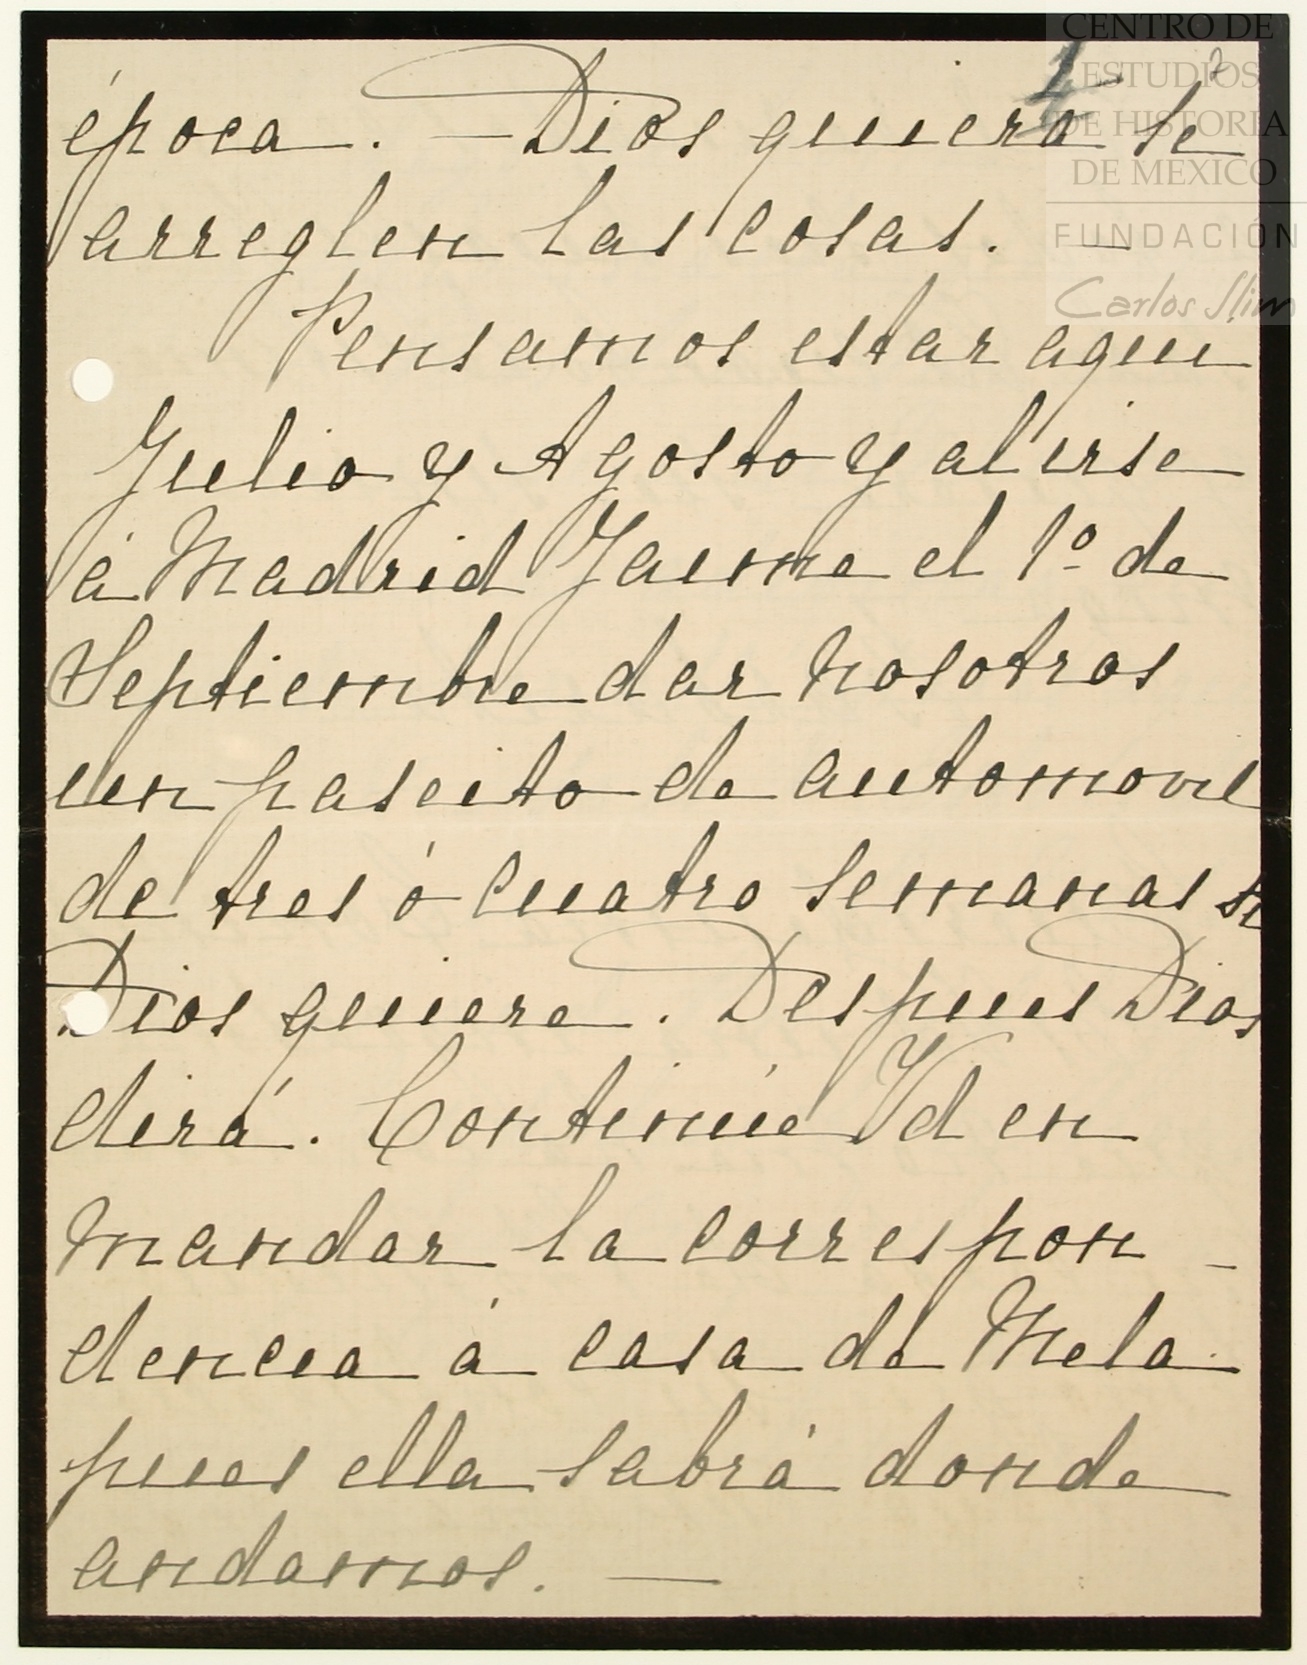 CENTRO DE
ESTUDIOS
DE HISTORIA
DE MEXICO
FUNDACIÓN
Carlos Slim
época. — Dios quiera se
arreglen las cosas. —
Pensamos estar aqui
Julio y Agosto y al irse
á Madrid Jaime el 1º de
Septiembre dar nosotros
un paseito de automovil
de tres ó cuatro semanas si
Dios quiere. Despues Dios
dirá. Continúe Vd en
mandar la correspon-
dencia á casa de Mela
pues ella sabrá donde
andamos. —